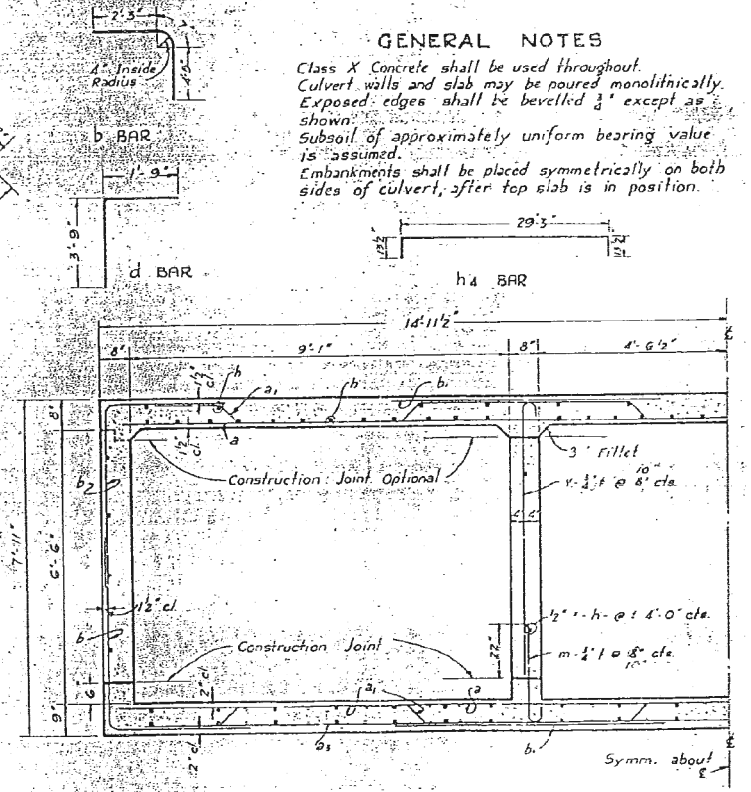 2'-3"
4" Inside
Radius
b BAR
1'-9"
3'-9"
d BAR
GENERAL NOTES
Class X Concrete shall be used throughout.
Culvert walls and slab may be poured monolithically.
Exposed edges shall be bevelled 3/4" except as
shown.
Subsoil of approximately uniform bearing value
is assumed.
Embankments shall be placed symmetrically on both
sides of culvert, after top slab is in position.
29'-3"
13½"
13½"
h4 BAR
14'-11½"
8"
9'-1"
8"
4'-6½"
1½" cl.
h
a1
h
b1
8"
1½" cl.
a
Construction Joint Optional
3" Fillet
10"
v-¾"ϕ @ 8" cts.
b2
4" 4"
7'-11"
6'-6"
1½" cl.
½"ϕ-h-@ ± 4'-0" cts.
b
22"
Construction Joint
m-¾"ϕ @ 8" cts.
10"
6"
2" cl.
a1
a
9"
2" cl.
a3
b1
Symm. about
℄